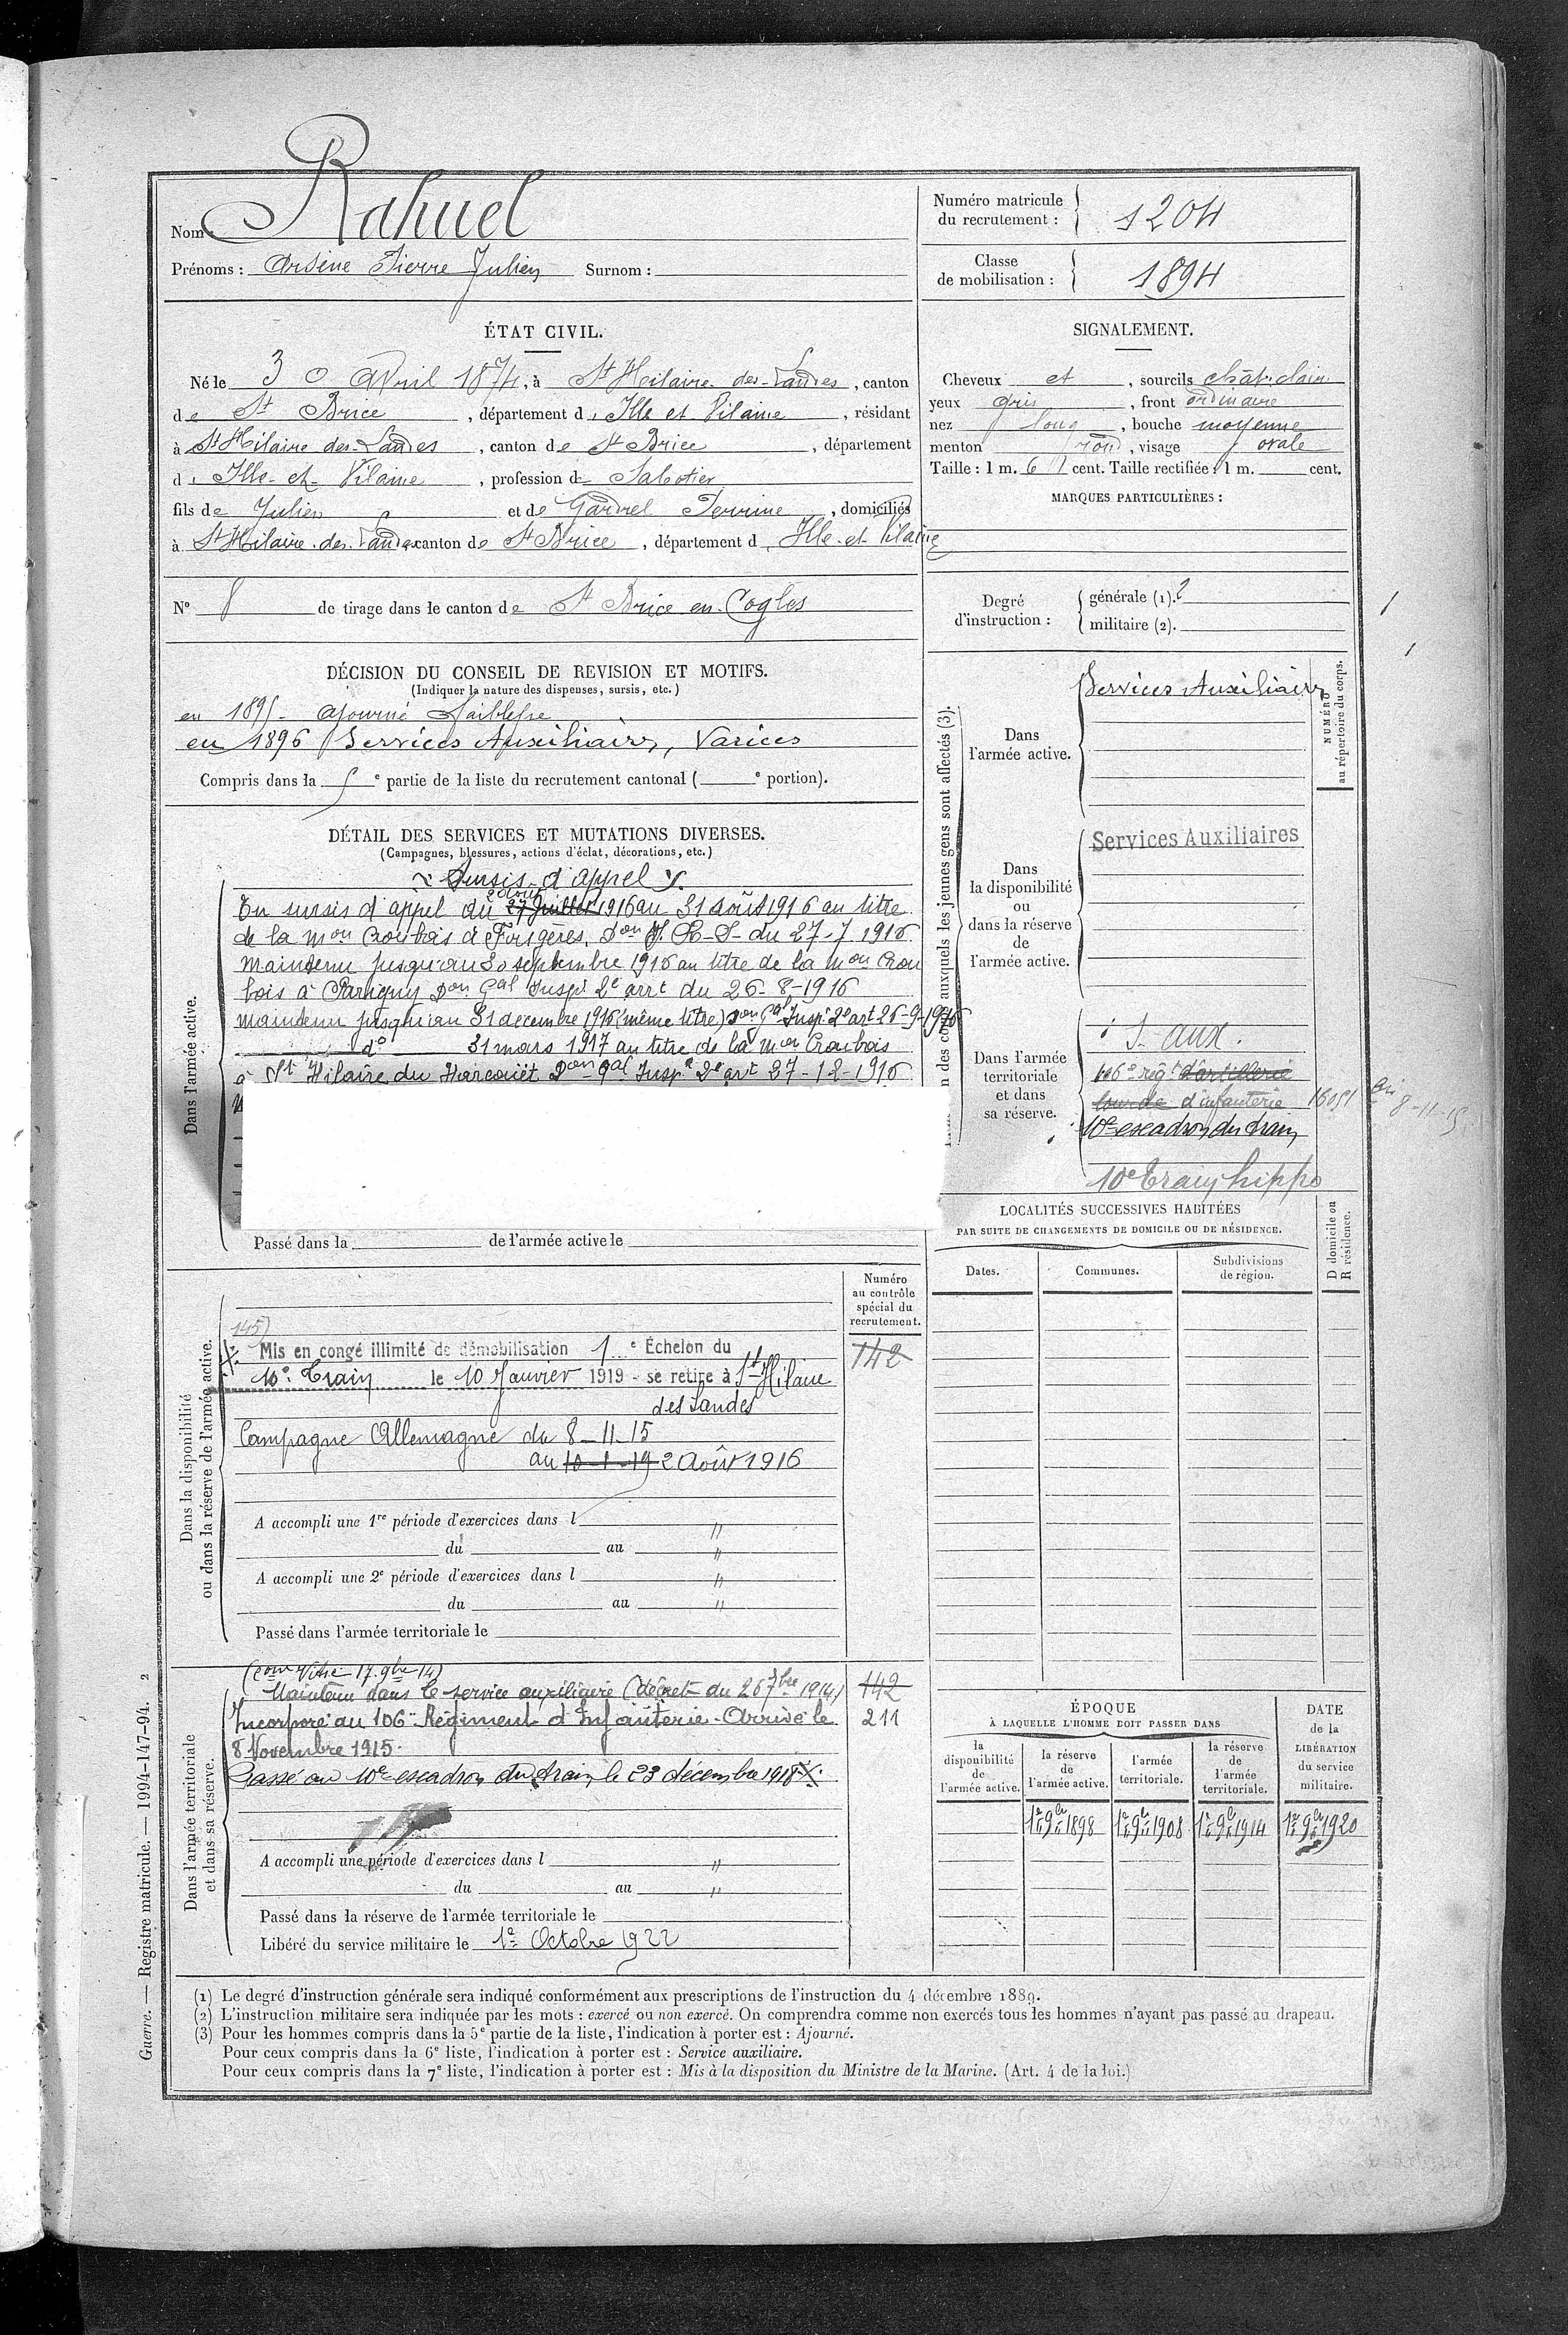 Nom : Rahuel
Prénoms : Arsène Pierre Julien Surnom :
Numéro matricule du recrutement : 1204
Classe de mobilisation : 1894
ÉTAT CIVIL.
Né le 30 Avril 1874, à St Hilaire-des-Landes, canton
de St Brice, département d'Ille et Vilaine, résidant
à St Hilaire-des-Landes, canton de St Brice, département
d'Ille-et-Vilaine, profession de Sabotier
fils de Julien et de Gardrel Perrine, domiciliés
à St Hilaire-des-Landes canton de St Brice, département d'Ille-et-Vilaine
N° 8 de tirage dans le canton de St Brice-en-Cogles
SIGNALEMENT.
Cheveux et, sourcils chât. clair
yeux gris, front ordinaire
nez long, bouche moyenne
menton rond, visage ovale
Taille : 1 m. 61 cent. Taille rectifiée : 1 m. cent.
MARQUES PARTICULIÈRES :
Degré d'instruction :
générale (1).
militaire (2).
DÉCISION DU CONSEIL DE REVISION ET MOTIFS.
(Indiquer la nature des dispenses, sursis, etc.)
en 1895 - ajourné faiblesse
en 1896 Services Auxiliaires, Varices
Compris dans la e partie de la liste du recrutement cantonal ( e portion).
DÉTAIL DES SERVICES ET MUTATIONS DIVERSES.
(Campagnes, blessures, actions d'éclat, décorations, etc.)
Dans l'armée active.
Sursis d'appel
2 Août
En sursis d'appel du 27 Juillet 1916 au 31 août 1916 au titre
de la mon Croubois à Fougères. Don du 27-7-1916
Maintenu jusqu'au 30 septembre 1916 au titre de la mon Crou
bois à Parigny Don Gal Inspr 2e arrt du 26-8-1916
Maintenu jusqu'au 31 décembre 1916 (même titre) Don Gal Insp. 2e art 26-9-1916
do 31 mars 1917 au titre de la mon Croubois
à St Hilaire du Harcouët Don Gal Insp. 2e art 27-12-1916
Passé dans la de l'armée active le
n des corps auxquels les jeunes gens sont affectés (3).
Dans l'armée active.
Services Auxiliaires
NUMÉRO au répertoire du corps.
Dans la disponibilité ou dans la réserve de l'armée active.
Services Auxiliaires
Dans l'armée territoriale et dans sa réserve.
S. aux.
106e régt d'artillerie
lourde d'infanterie 16051
8-11-15
10e escadron du train
10e Train hippo
LOCALITÉS SUCCESSIVES HABITÉES
PAR SUITE DE CHANGEMENTS DE DOMICILE OU DE RÉSIDENCE.
Dates.
Communes.
Subdivisions de région.
D domicile ou R résidence.
Dans la disponibilité ou dans la réserve de l'armée active.
Numéro au contrôle spécial du recrutement.
142
145)
Mis en congé illimité de démobilisation 1e Échelon du
10e Train le 10 Janvier 1919 - se retire à St Hilaire
des Landes
Campagne Allemagne du 8-11-15
au 10-1-19 2 Août 1916
A accompli une 1re période d'exercices dans l "
du au "
A accompli une 2e période d'exercices dans l "
du au "
Passé dans l'armée territoriale le
Dans l'armée territoriale et dans sa réserve.
(Com Vitré 17. 9bre 14)
Maintenu dans le service auxiliaire (décret du 26 7bre 1914) 142
Incorporé au 106e Régiment d'Infanterie. Arrivé le 211
8 Novembre 1915.
Passé au 10e escadron du train le 23 décembre 1918
A accompli une période d'exercices dans l "
du au "
Passé dans la réserve de l'armée territoriale le
Libéré du service militaire le 1er Octobre 1922
ÉPOQUE
À LAQUELLE L'HOMME DOIT PASSER DANS
la disponibilité de l'armée active.
la réserve de l'armée active.
l'armée territoriale.
la réserve de l'armée territoriale.
DATE de la LIBÉRATION du service militaire.
1er 9bre 1898
1er 9bre 1908
1er 9bre 1914
1er 9bre 1920
(1) Le degré d'instruction générale sera indiqué conformément aux prescriptions de l'instruction du 4 décembre 1889.
(2) L'instruction militaire sera indiquée par les mots : exercé ou non exercé. On comprendra comme non exercés tous les hommes n'ayant pas passé au drapeau.
(3) Pour les hommes compris dans la 5e partie de la liste, l'indication à porter est : Ajourné.
Pour ceux compris dans la 6e liste, l'indication à porter est : Service auxiliaire.
Pour ceux compris dans la 7e liste, l'indication à porter est : Mis à la disposition du Ministre de la Marine. (Art. 4 de la loi.)
Guerre. — Registre matricule. — 1994-147-94. 2